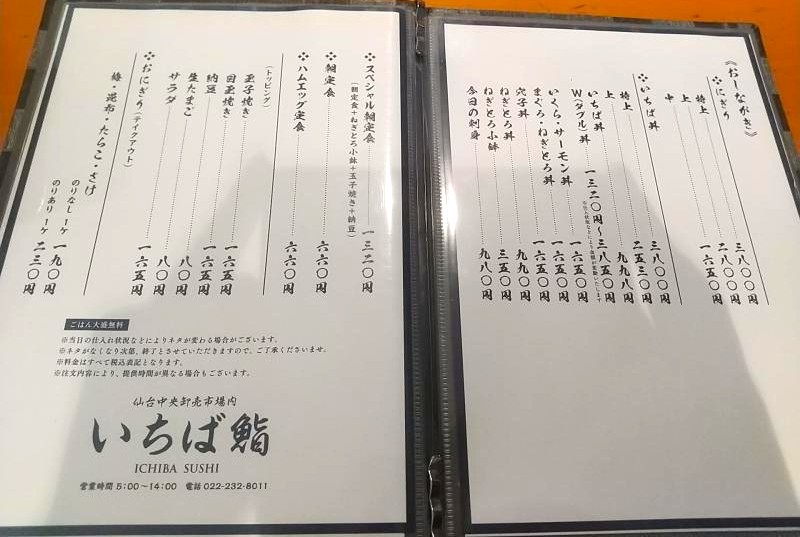 《おしながき》
❖にぎり
特上 三八〇〇円
上 二八〇〇円
中 一六五〇円
❖いちば丼
特上 三八〇〇円
上 二五三〇円
いちば丼 九九八円
W(ダブル)丼 一三二〇円〜三八五〇円
※仕入れ状況などにより金額が変動いたします
いくら・サーモン丼 一六五〇円
まぐろ・ねぎとろ丼 一六五〇円
穴子丼 一六五〇円
ねぎとろ丼 九八〇円
ねぎとろ小鉢 三五〇円
今日の刺身 九八〇円
❖スペシャル朝定食 一三二〇円
(朝定食+ねぎとろ小鉢+玉子焼き+納豆)
❖朝定食 六六〇円
❖ハムエッグ定食 六六〇円
(トッピング)
玉子焼き 一六五円
目玉焼き 一六五円
納豆 一六五円
生たまご 八〇円
サラダ 一六五円
❖おにぎり(テイクアウト)
梅・昆布・たらこ・さけ
のりなし 1ケ 一九〇円
のりあり 1ケ 二三〇円
ごはん大盛無料
※当日の仕入れ状況などによりネタが変わる場合がございます。
※ネタがなくなり次第、終了とさせていただきますので、ご了承くださいませ。
※料金はすべて税込表記となります。
※注文内容により、提供時間が異なる場合もございます。
仙台中央卸売市場内
いちば鮨
ICHIBA SUSHI
営業時間 5:00〜14:00 電話 022-232-8011